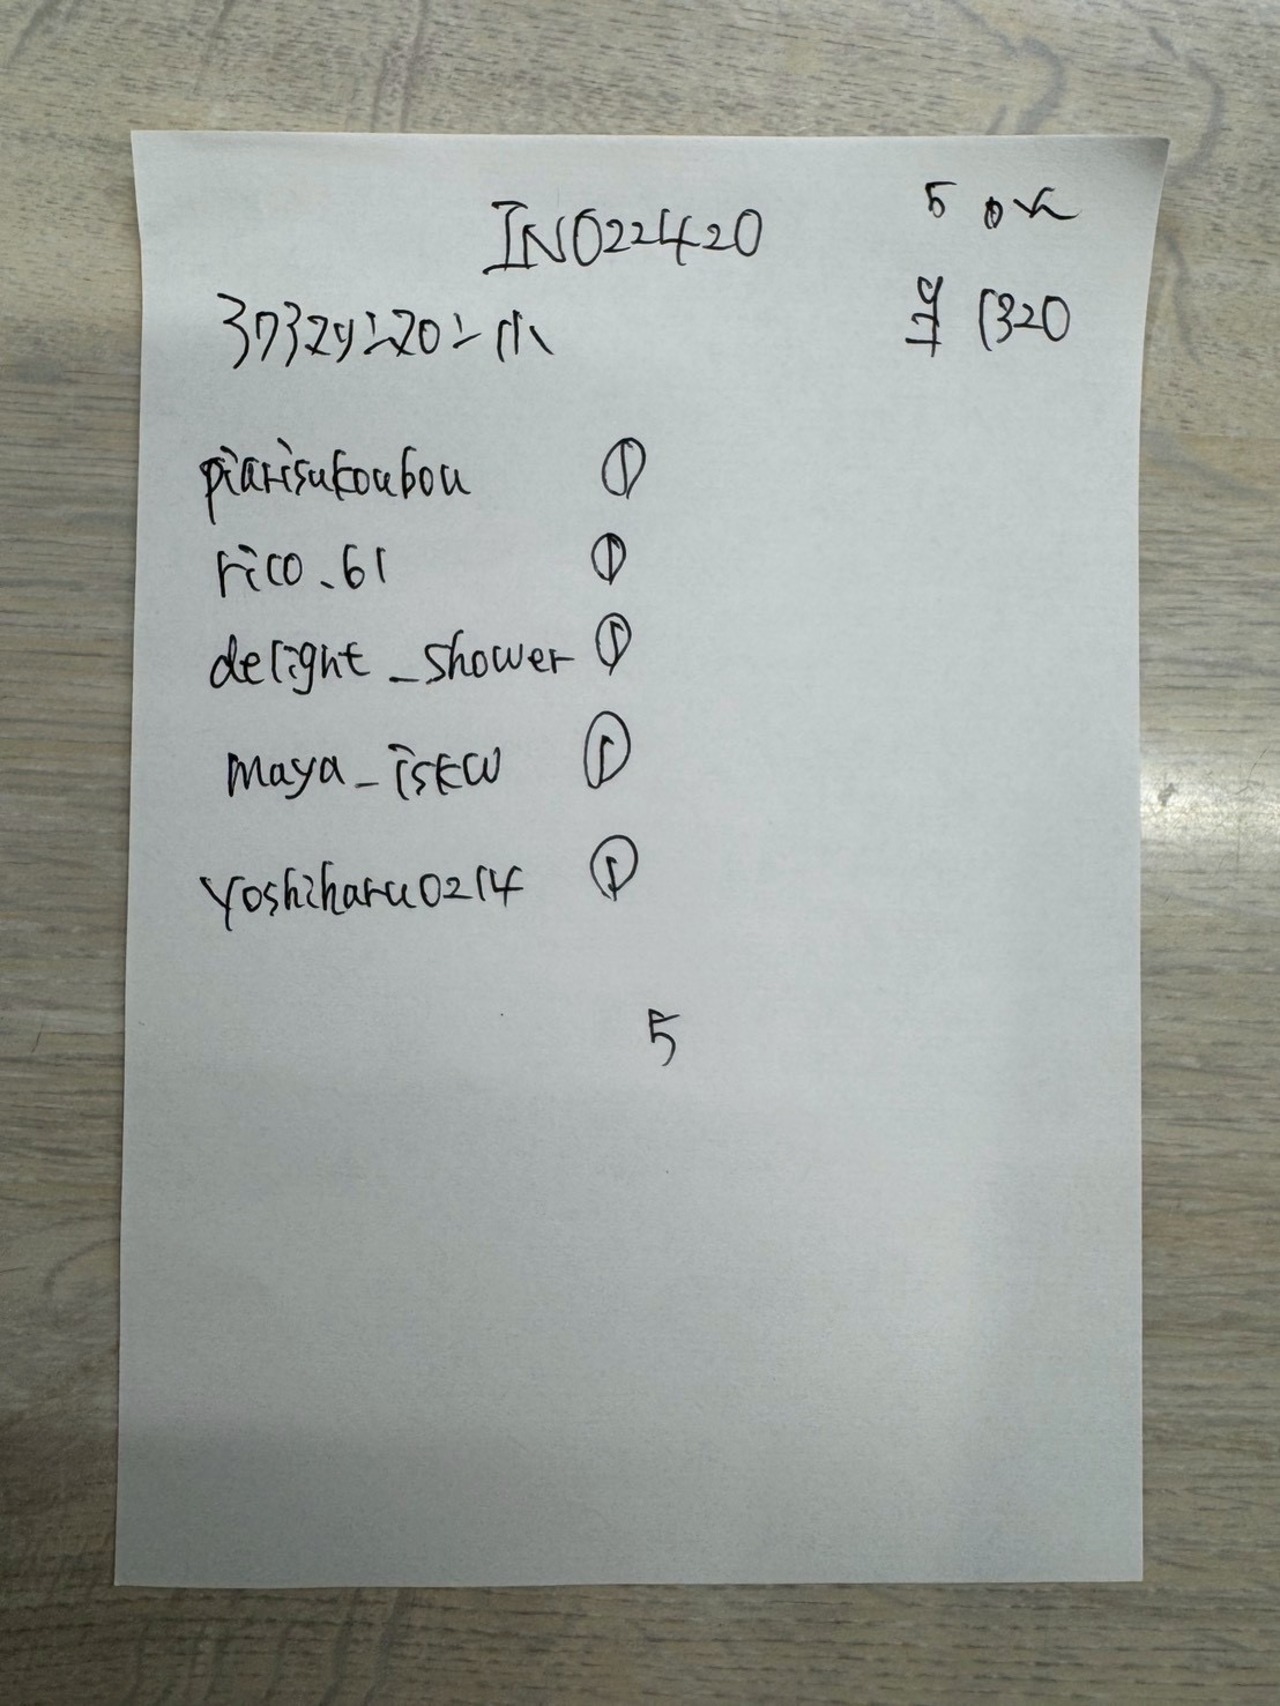 INO22420
5 ok
37329220211
몇 1320
piarisukoubou ①
rico_61 ①
delight_shower ①
maya_iskw ①
yoshiharu0214 ①
5